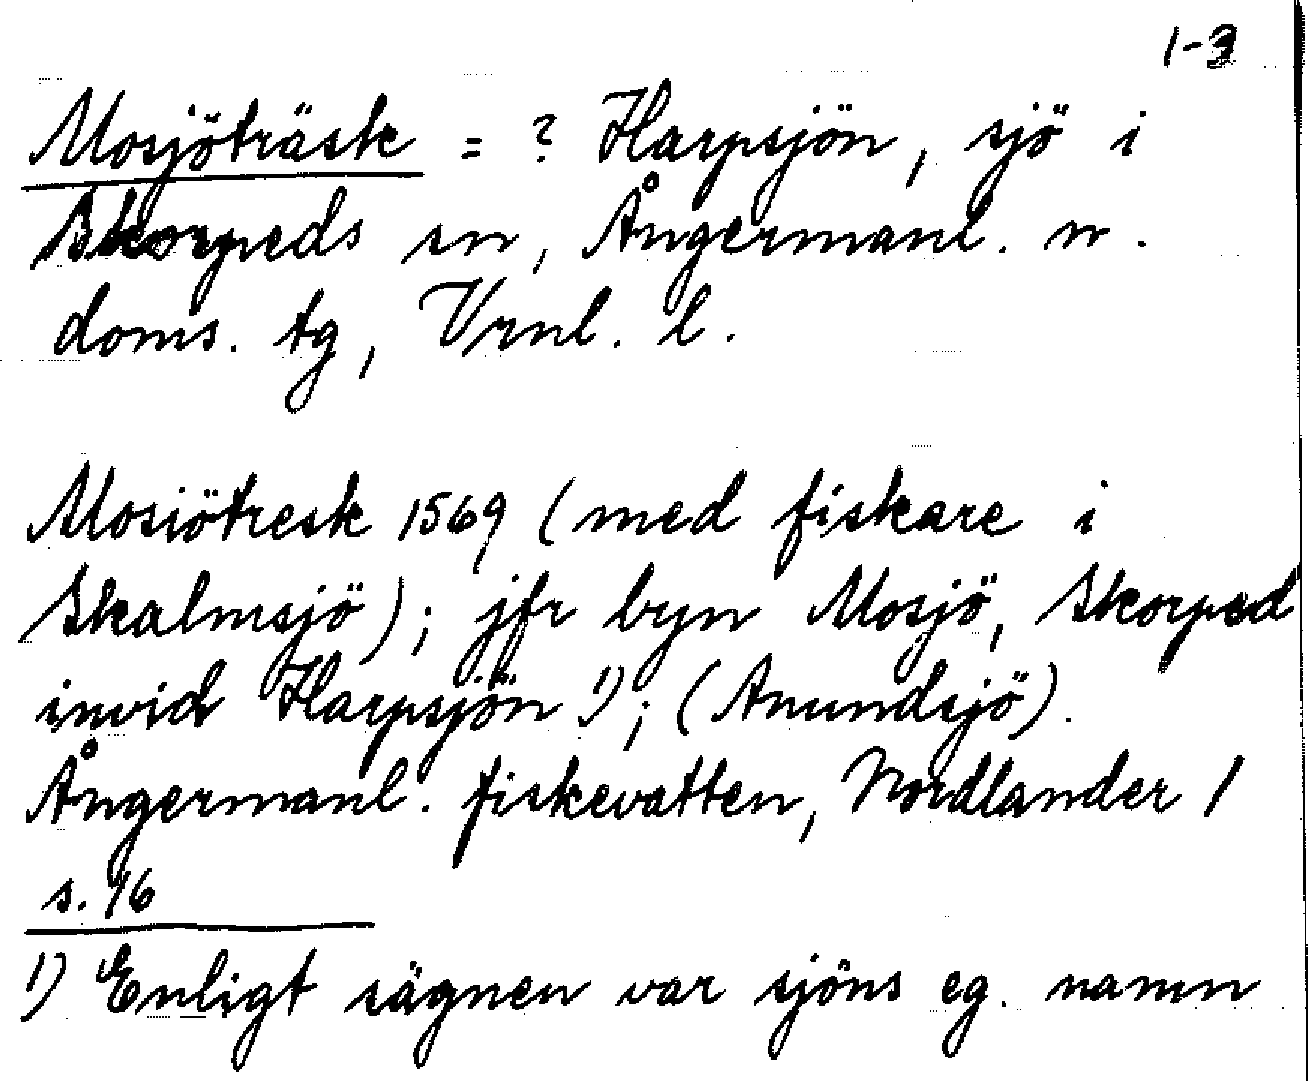 1-3
Mosjöträsk = ? Harpsjön, sjö i
Skorpeds sn, Ångermanl. n.
doms. tg, Vrnl. l.
Mosiötresk 1569 (med fiskare i
Skalmsjö); jfr byn Mosjö, Skorped
invid Harpsjön 1); (Anundsjö).
Ångermanl. fiskevatten, Nordlander 1
s. 16
1) Enligt sägnen var sjöns eg. namn